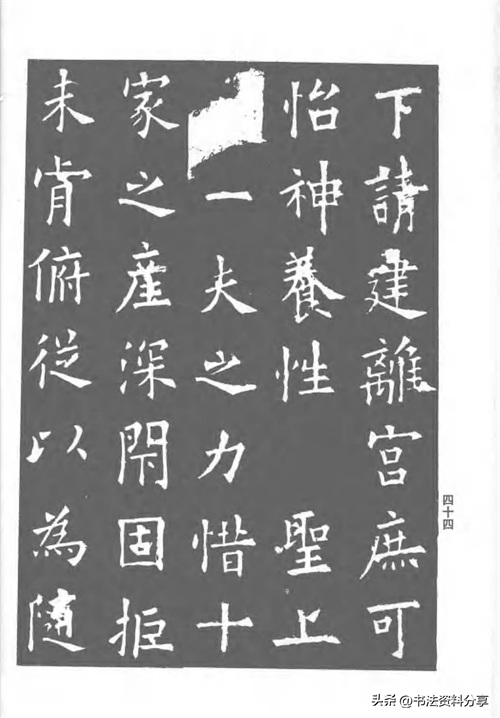 下請建離宮庶可
怡神養性 聖上
一夫之力惜十
家之產深閇固拒
未肯俯從以為隨
四十四
头条 @书法资料分享